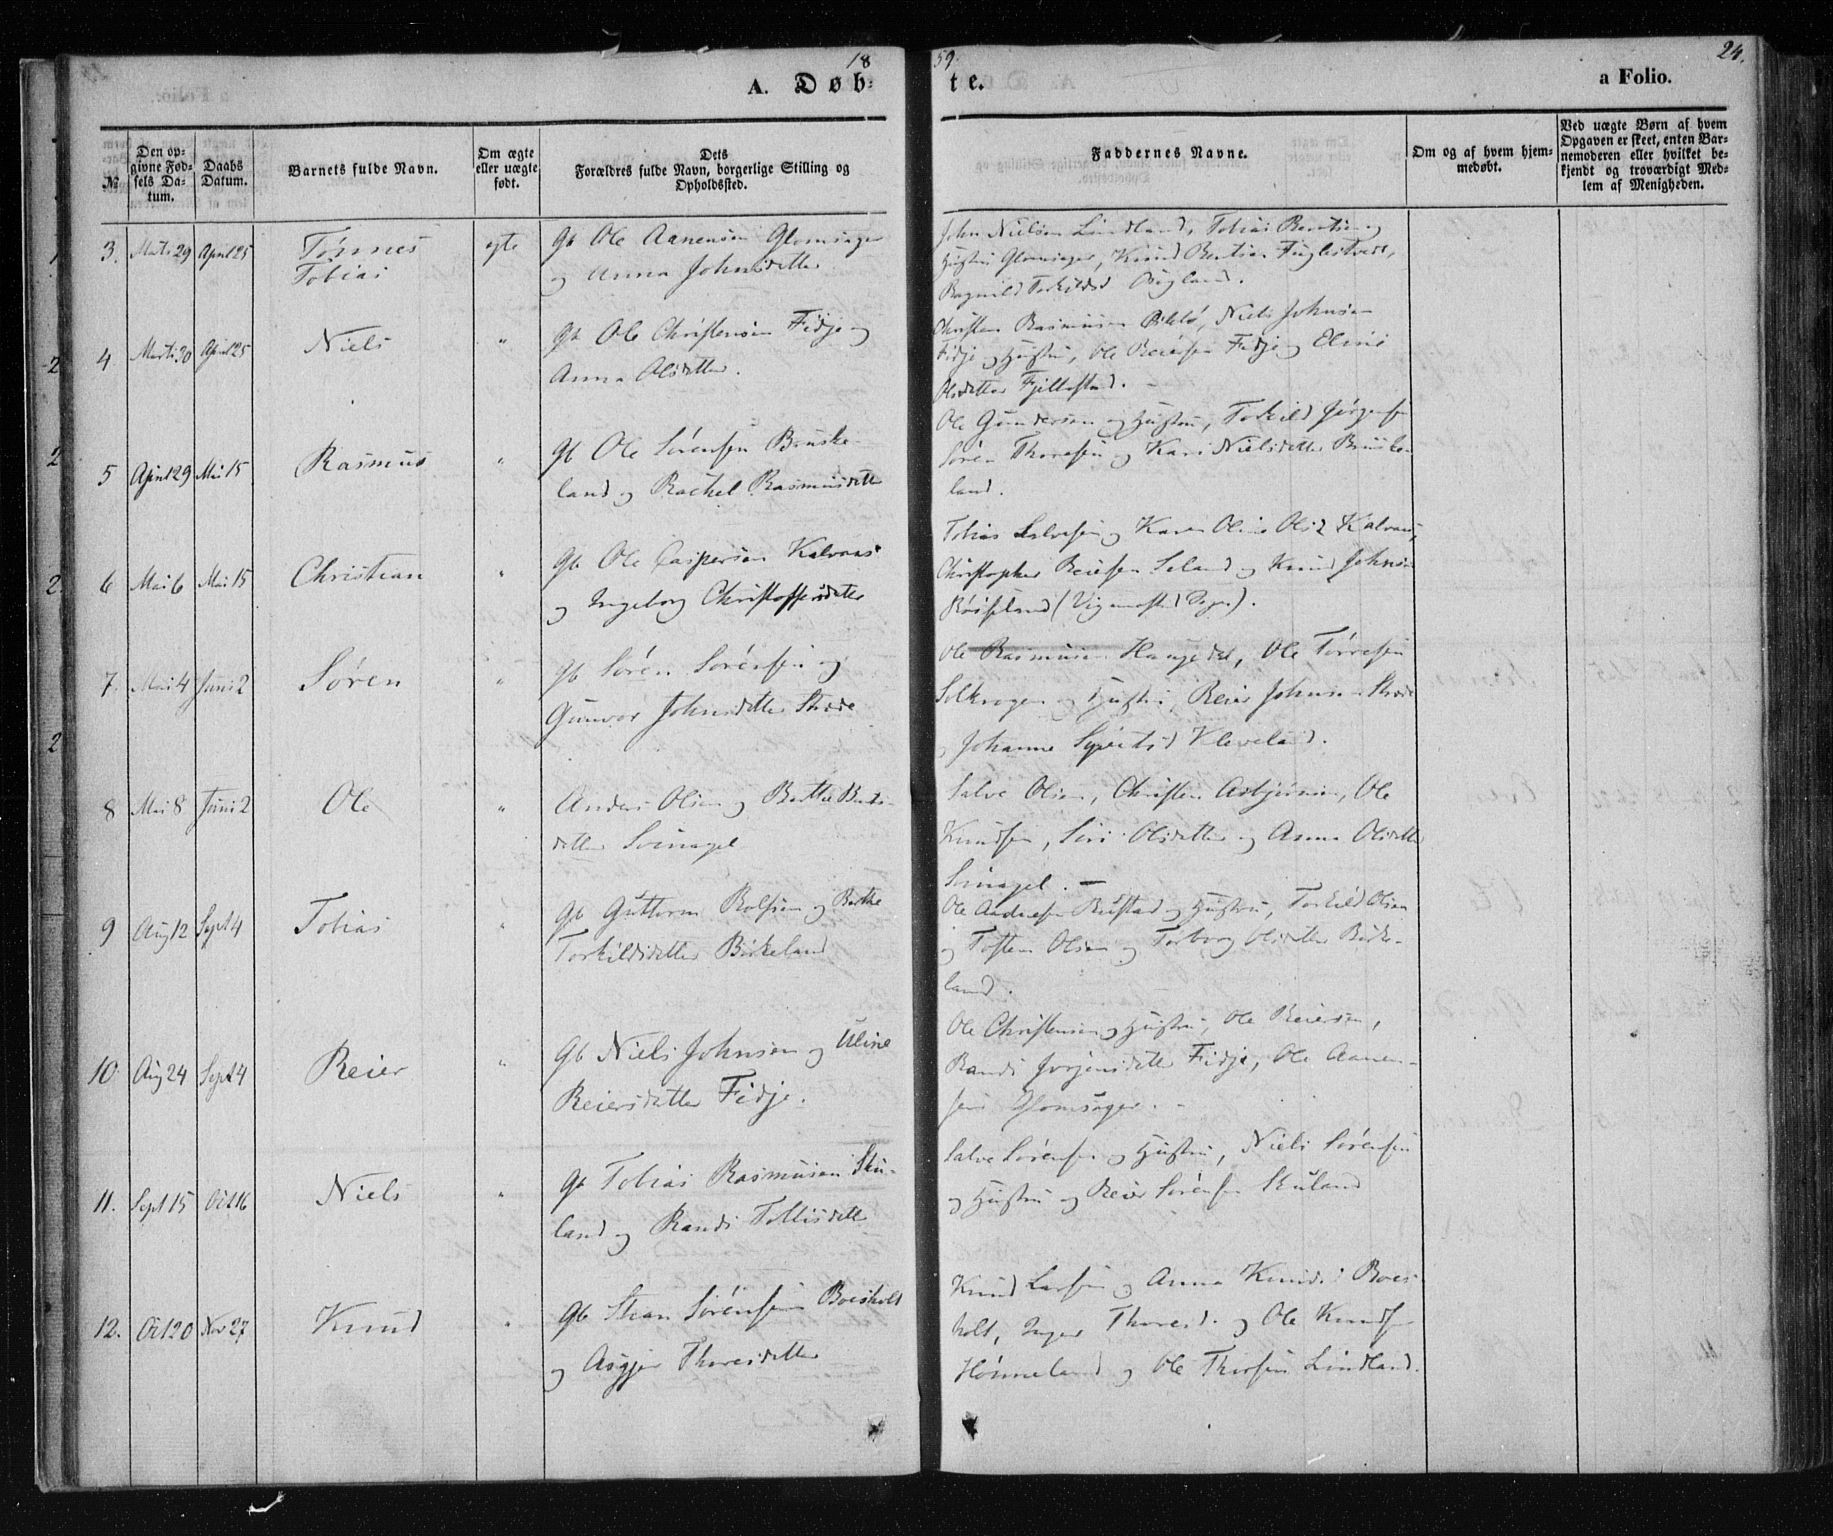 18
59.
24.
A. Døb-
te.
a Folio.
№
Den op-
givne Fød-
sels Da-
tum.
Daabs
Datum.
Barnets fulde Navn.
Om ægte
eller uægte
født.
Dets
Forældres fulde Navn, borgerlige Stilling og
Opholdssted.
Faddernes Navne.
Om og af hvem hjem-
medøbt.
Ved uægte Børn af hvem
Opgaven er skeet, enten Bar-
nemoderen eller hvilket be-
kjendt og troværdigt Med-
lem af Menigheden.
3. Marts 29 April 25 Tønnes
Tobias
egte
Gb Ole Aanensen Glomsager
og Anna Johnsdatter
John Nielsen Lindland, Tobias Bentsen og
Hustru Glomsager, Knud Bentsen Fuglestvedt,
Ragnild Torkildsd
4 Marts 30 April 25 Niels "
Gb Ole Christensen Fidje og
Anna Olsdatter.
Christen Rasmusen, Niels Johnsen
Fidje og Hustru, Ole Reiersen Fidje og
Olsdatter Fjellestad.
5 April 29 Mai 15 Rasmus "
Gb Ole Sørensen Bruske-
land og Rachel Rasmusdatter
Ole Gundersen og Hustru, Torkild Jørgensen
Søren Thoresen og Kari Nielsdatter Bruske-
land.
6 Mai 6 Mai 15 Christian "
Gb Ole Caspersen Kalvaas
og Ingeborg Christoffersdatter
Tobias Salvesen og Karen Kalvaas,
Christopher Reiersen Seland og Knud Johnsen
7. Mai 4 Juni 2 Søren "
Gb Søren Sørensen og
Gunvor Johnsdatter Stræde
Ole Rasmusen Haugedal, Ole Tørresen
og Hustru, Reier Johnsen Stræde
og Johanne Kleveland.
8 Mai 8 Juni 2 Ole "
Anders Olsen og Berthe Bents-
datter Svinagel
Salve Olsen, Christen Asbjørnsen, Ole
Knudsen, Siri Olsdatter og Anna Olsdatter
Svinagel.
9 Aug 12 Sept 4 Tobias "
Gb Guttorm Rolfsen og Berthe
Torkildsdatter Birkeland
Ole Andersen Rustad og Hustru, Torkild Olsen
og Tosten Olsen og Torborg Olsdatter Birke-
land.
10 Aug 24 Sept 4 Reier "
Gb Niels Johnsen og Uline
Reiersdatter Fidje.
Ole Christensen og Hustru, Ole Reiersen,
Randi Jørgensdatter Fidje, Ole Aanen-
sen Glomsager.
11. Sept 15 Oct 16 Niels "
Gb Tobias Rasmusen Sku-
land og Randi Tollisdatter
Salve Sørensen og Hustru, Niels Sørensen
og Hustru og Reier Sørensen Skuland
12. Oct 20 Nov 27 Knud "
Gb Stean Sørensen Boesholt
og Asgjer Thoresdatter
Knud Larsen og Anna Knudsd Boes-
holt, Inger Thoresd. og Ole Knudsen
Hønneland og Ole Thorsen Lindland.